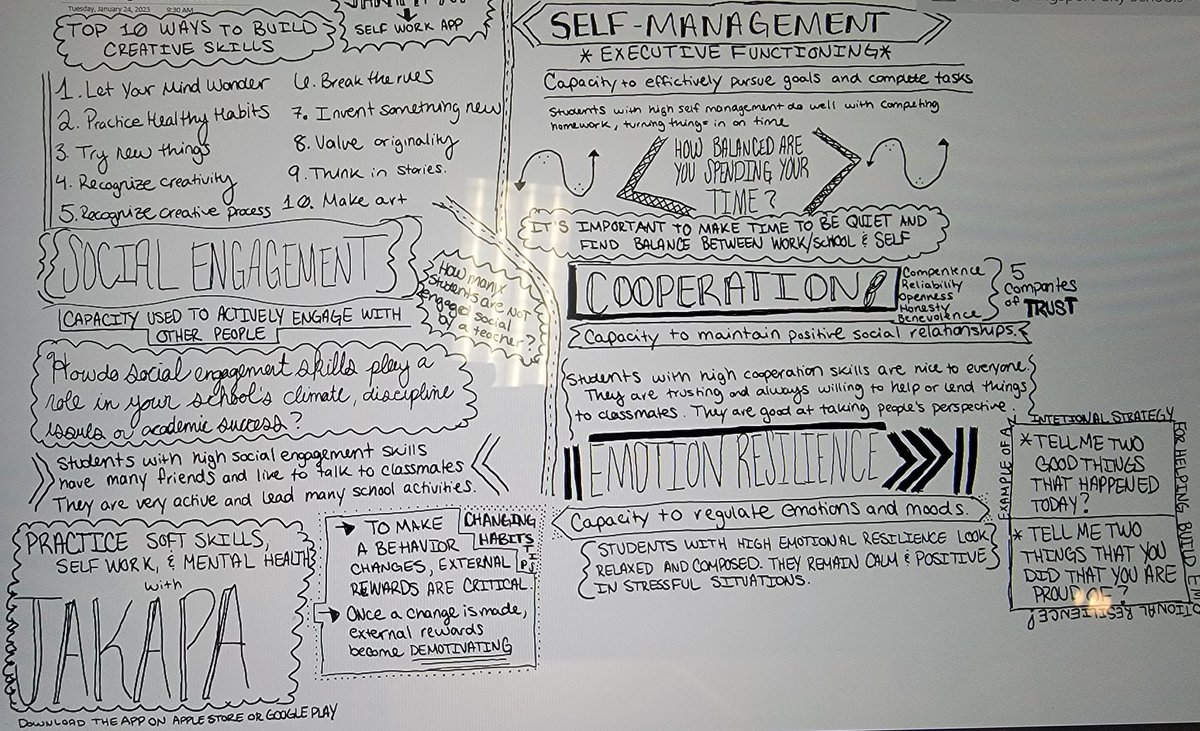 Tuesday, January 24, 2023 9:30 AM
TOP 10 WAYS TO BUILD
CREATIVE SKILLS
SELF WORK APP
1. Let Your Mind Wonder
2. Practice Healthy Habits
3. Try new things
4. Recognize creativity
5. Recognize creative process
6. Break the rules
7. Invent something new
8. Value originality
9. Think in stories.
10. Make art
SOCIAL ENGAGEMENT
CAPACITY USED TO ACTIVELY ENGAGE WITH
OTHER PEOPLE
How many
students are NOT
engaged social
by
a teacher?
How do social engagement skills play a
role in your school's climate, discipline
issues or academic success?
Students with high social engagement skills
have many friends and like to talk to classmates
They are very active and lead many school activities.
PRACTICE SOFT SKILLS,
SELF WORK, & MENTAL HEALTH
with
JAKAPA
DOWNLOAD THE APP ON APPLE STORE OR GOOGLE PLAY
CHANGING
HABITS
TIP
→ TO MAKE
A BEHAVIOR
CHANGES, EXTERNAL
REWARDS ARE CRITICAL
→ ONCE a change is made,
external rewards
become DEMOTIVATING
SELF-MANAGEMENT
* EXECUTIVE FUNCTIONING *
Capacity to effictively pursue goals and complete tasks
Students with high self management do well with competing
homework, turning things in on time
HOW BALANCED ARE
YOU SPENDING YOUR
TIME?
IT'S IMPORTANT TO MAKE TIME TO BE QUIET AND
FIND BALANCE BETWEEN WORK/SCHOOL & SELF
COOPERATION
Compenience
Reliability
Openness
Honesty
Benevolence
5
compontes
of TRUST
Capacity to maintain positive social relationships.
Students with high cooperation skills are nice to everyone.
They are trusting and always willing to help or lend things
to classmates. They are good at taking people's perspective.
EMOTION RESILIENCE
Capacity to regulate emotions and moods.
STUDENTS WITH HIGH EMOTIONAL RESILIENCE LOOK
RELAXED AND COMPOSED. THEY REMAIN CALM & POSITIVE
IN STRESSFUL SITUATIONS.
EXAMPLE OF A
INTETIONAL STRATEGY
FOR HELPING BUILD EMO
TIONAL RESILIENCE?
* TELL ME TWO
GOOD THINGS
THAT HAPPENED
TODAY?
* TELL ME TWO
THINGS THAT YOU
DID THAT YOU ARE
PROUD OF?